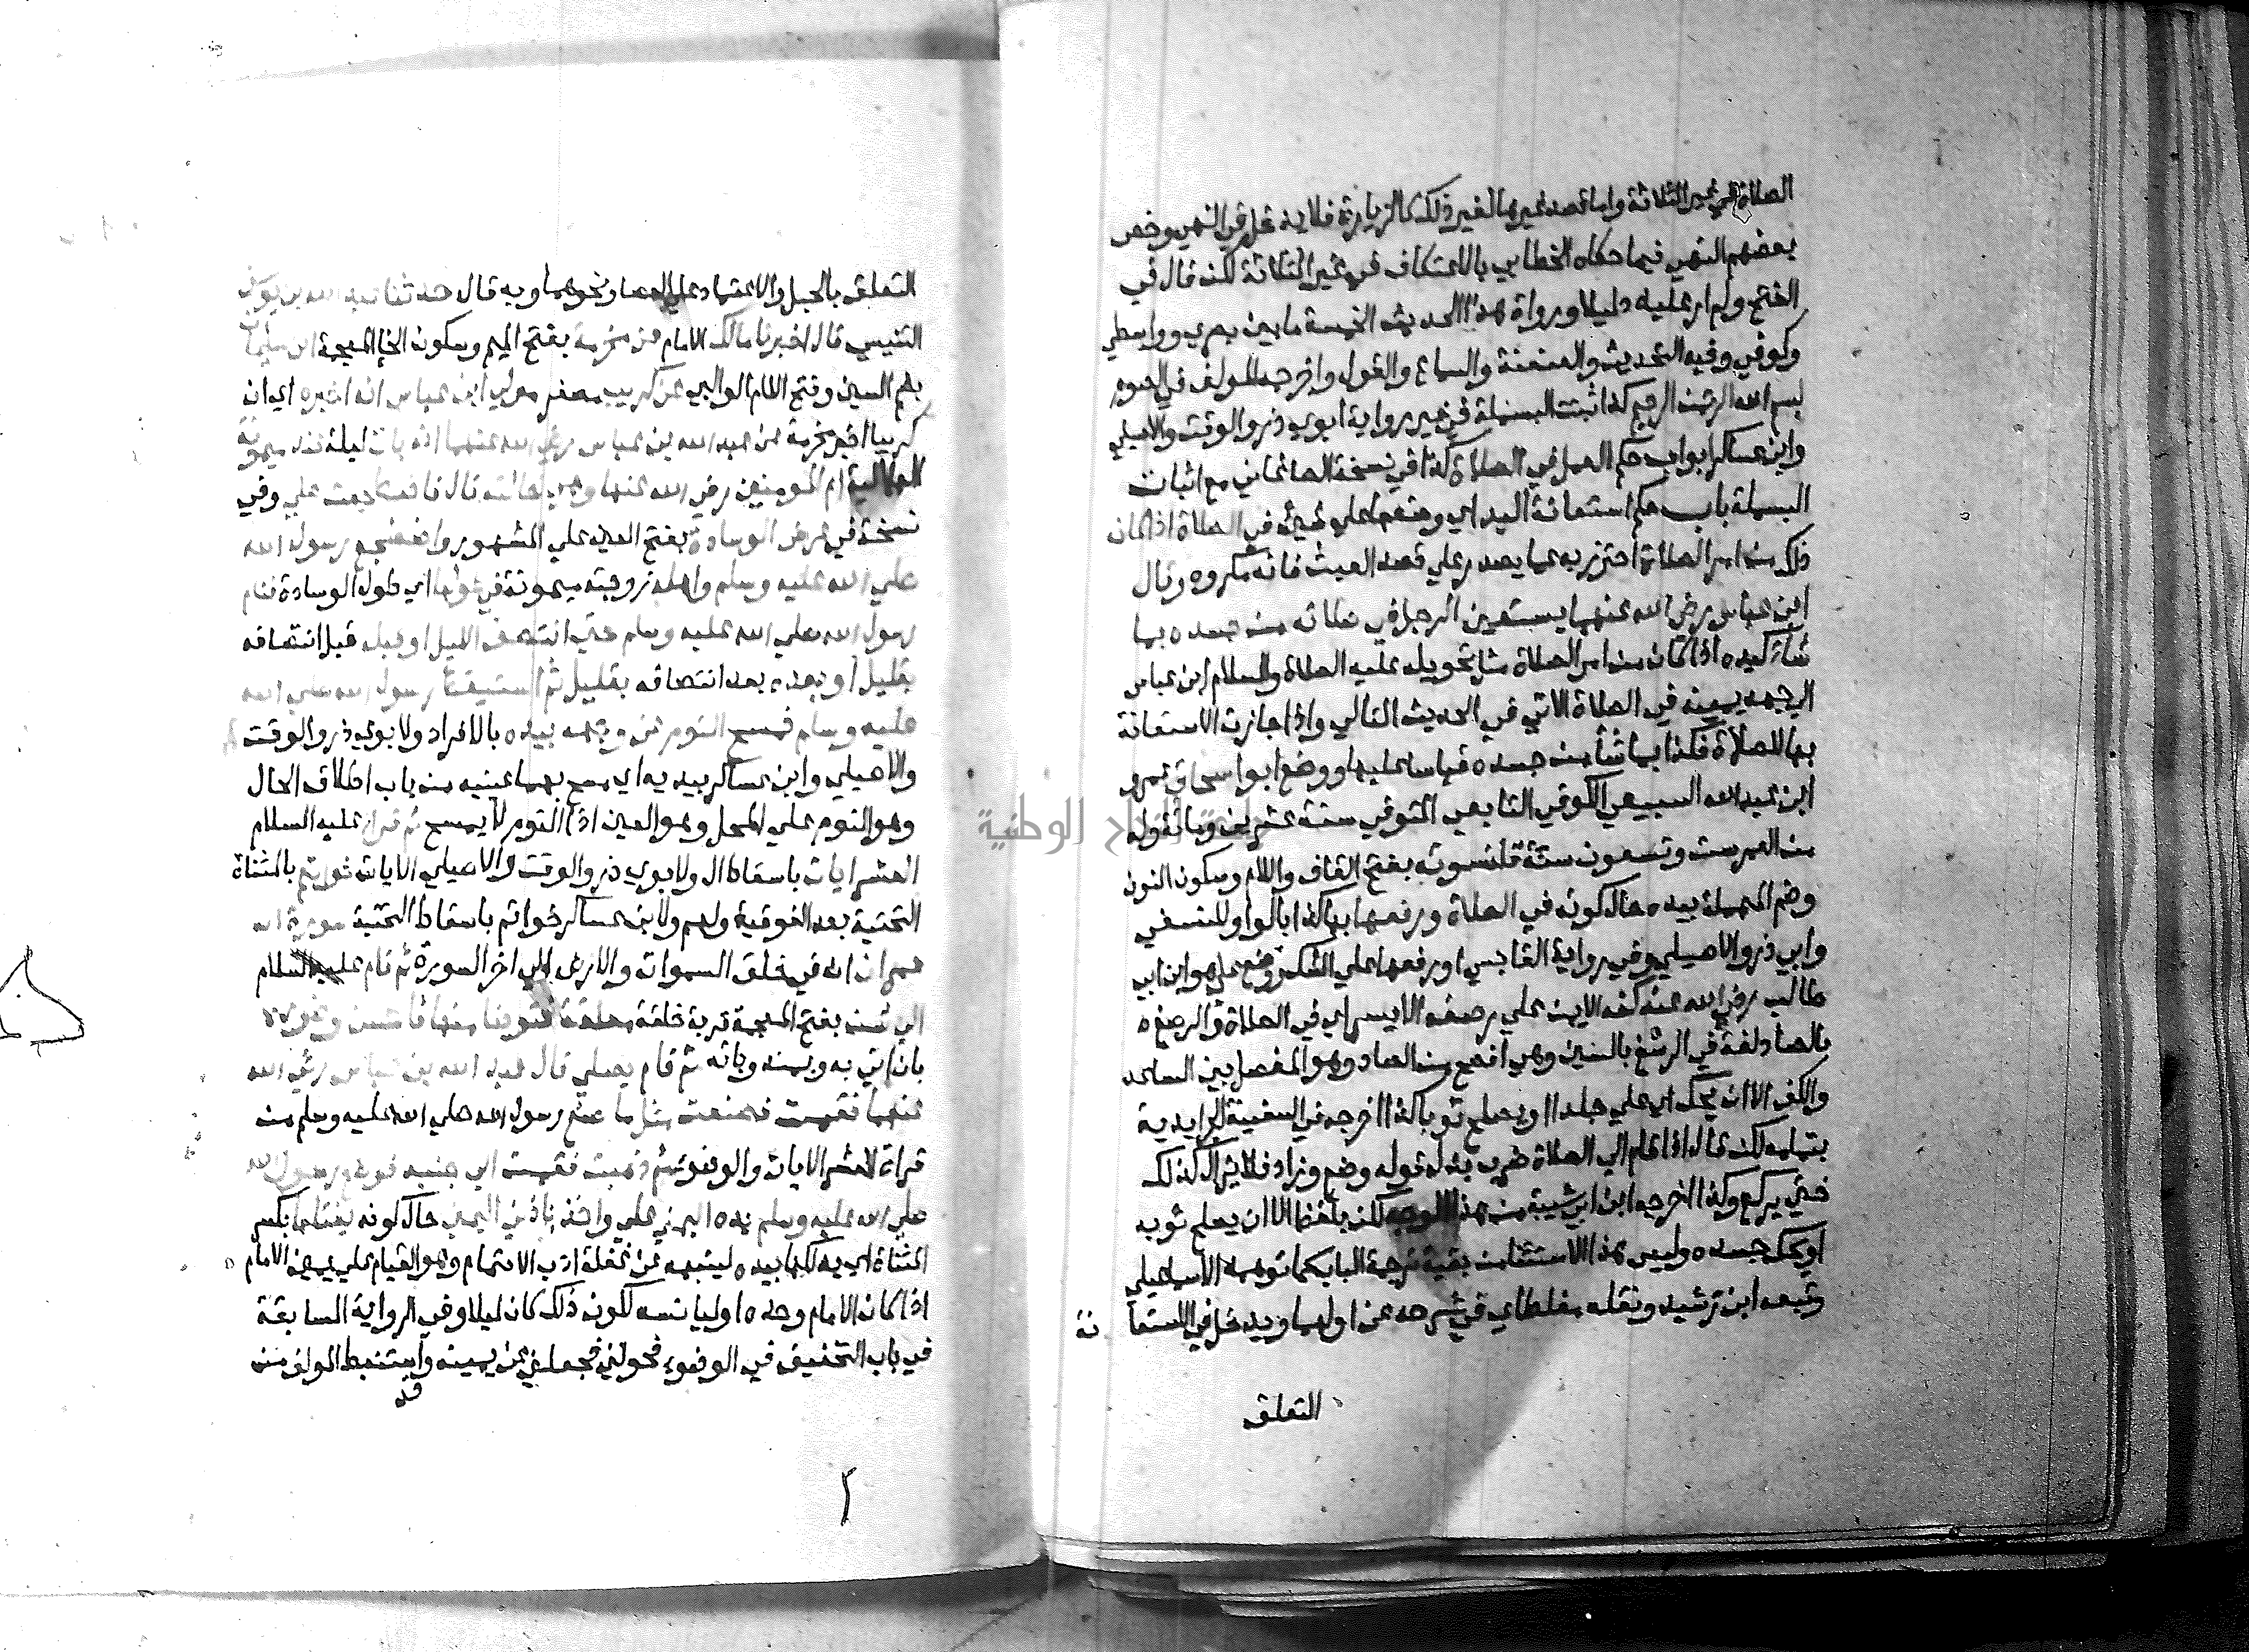 الصلاة في غير الثلاثة واما قصد غيرها لغير ذلك كالزيارة فلا يدخل في النهي وخص
بعضهم النهي فيما حكاه الخطابي بالاعتكاف في غير الثلاثة لكن قال في
الفتح ولم ار عليه دليلا ورواة هذا الحديث الخمسة ما بين بصري وواسطي
وكوفي وفيه التحديث والعنعنة والسماع والقول واخرجه المولف في الصوم
بسم الله الرحمن الرحيم كذا ثبت البسملة في غير رواية ابوي ذر والوقت والاصيلي
وابن عساكر ابواب حكم العمل في الصلاة كذا في نسخة الصاغاني مع اثبات
البسملة باب حكم استعانة اليد اي وضعها علي شي في الصلاة اذا كان
ذلك من امر الصلاة احترز به عما يصدر علي قصد العبث فانه مكروه وقال
ابن عباس رضي الله عنهما يستعين الرجل في صلاته من جسده بما
شا كيده اذا كان من امر الصلاة مثل تحويله عليه الصلاة والسلام ابن عباس
الي جهة يمينه في الصلاة الاتي في الحديث التالي واذا جازت الاستعانة
بها للصلاة فكذا بما شا من جسده قياسا عليها ووضع ابو اسحاق عمرو
ابن عبد الله السبيعي الكوفي التابعي المتوفي سنة عشرين ومائة وله
من العمر ست وتسعون سنة قلنسوته بفتح القاف واللام وسكون النون
وضم المهملة بيده حال كونه في الصلاة ورفعها بها كذا بالواو للنسفي
وابي ذر والاصيلي وفي رواية القابسي او رفعها علي الشك ووضع علي هو ابن ابي
طالب رضي الله عنه كفه الايمن علي رصغه الايسر اي في الصلاة والرصغ
بالصاد لغة في الرسغ بالسين وهي افصح من الصاد وهو المفصل بين الساعد
والكف الا ان يحك اي علي جلدا او يصلح ثوبا كذا اخرجه في السفينة الجرايدية
بتمامه لكن قال اذا قام الي الصلاة ضرب بدل قوله وضع وزاد فلا يزال كذلك
حتي يركع وكذا اخرجه ابن ابي شيبة من هذا الوجه لكن بلفظ الا ان يصلح ثوبه
او يحك جسده وليس هذا الاستثنا من بقية ترجمة الباب كما توهمه الاسماعيلي
وتبعه ابن رشيد ونقله مغلطاي في شرحه عن اولهما ويدخل في الاستعا نة
التعلق
التعلق بالحبل والاعتماد علي العصا ونحوهما وبه قال حدثنا عبد الله بن يوسف
التنيسي قال اخبرنا مالك الامام عن مخرمة بفتح الميم وسكون الخا المعجمة ابن سليمان
بضم السين وفتح اللام الوالبي عن كريب مصغر مولي ابن عباس انه اخبره اي ان
كريبا اخبر مخرمة عن عبد الله بن عباس رضي الله عنهما انه بات ليلة عند ميمونة
الهلالية ام المومنين رضي الله عنها وهي خالته قال فاضطجعت علي وفي
نسخة في عرض الوسادة بفتح العين علي المشهور واضطجع رسول الله
صلي الله عليه وسلم واهله زوجته ميمونة في طولها اي طول الوسادة فنام
رسول الله صلي الله عليه وسلم حتي انتصف الليل او قبله قبل انتصافه
بقليل او بعده بعد انتصافه بقليل ثم استيقظ رسول الله صلي الله
عليه وسلم فمسح النوم عن وجهه بيده بالافراد ولابوي ذر والوقت
والاصيلي وابن عساكر بيديه اي مسح بهما عينيه من باب اطلاق الحال
وهو النوم علي المحل وهو العين اذ النوم لا يمسح ثم قرا عليه السلام
العشر ايات باسقاط ال ولابوي ذر والوقت والاصيلي الايات خواتيم بالمثناة
التحتية بعد الفوقية ولهم ولابن عساكر خواتم باسقاط التحتية سورة ال
عمران ان في خلق السموات والارض الي اخر السورة ثم قام عليه السلام
الي شن بفتح المعجمة قربة خلقة معلقة فتوضا منها فاحسن وضوءه
بان اتي به وبمندوباته ثم قام يصلي قال عبد الله بن عباس رضي الله
عنهما فقمت فصنعت مثل ما صنع رسول الله صلي الله عليه وسلم من
قراة العشر الايات والوضوء ثم ذهبت فقمت الي جنبه فوضع رسول الله
صلي الله عليه وسلم يده اليمني علي واخذ باذني اليمني حال كونه يفتلها بكسر
المثناة اي يدلكها بيده لينبهه عن غفلة ادب الايتمام وهو القيام علي يمين الامام
اذا كان الامام وحده او ليانسه لكون ذلك كان ليلا وفي الرواية السابقة
في باب التخفيف في الوضوء فحولني فجعلني عن يمينه واستنبط المولف من